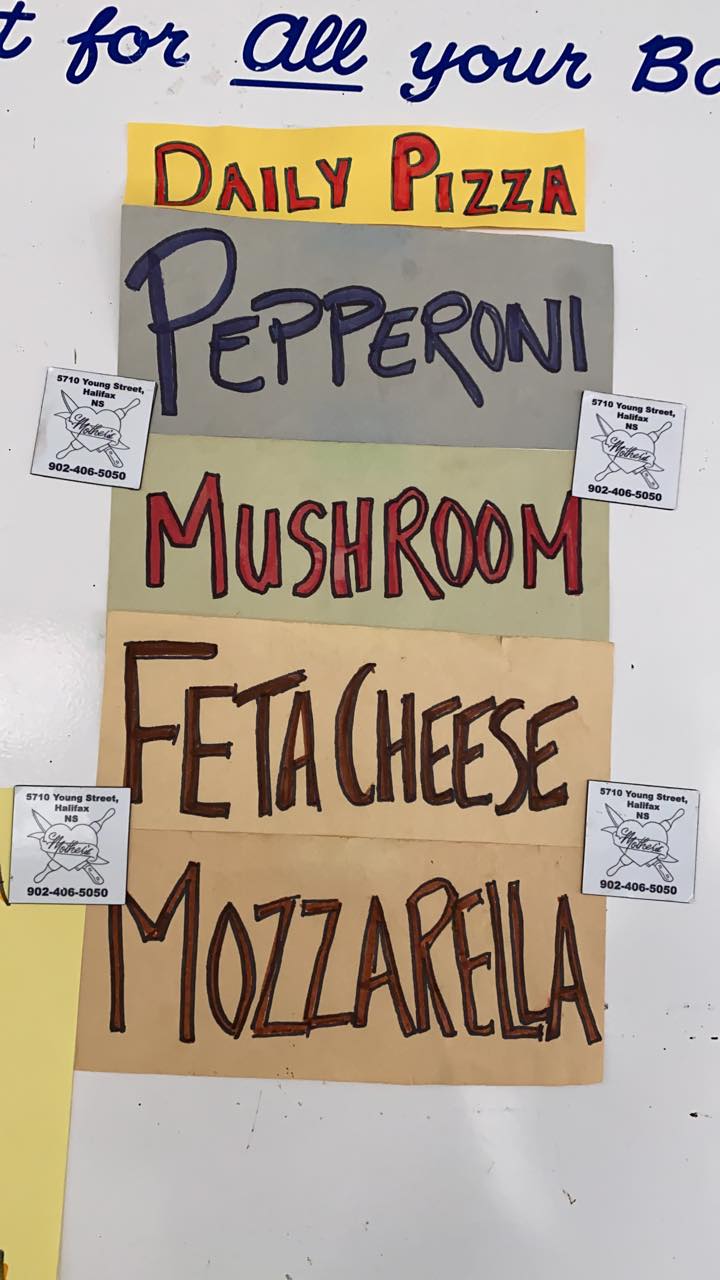 t for All your Bo
DAILY PIZZA
PEPPERONI
5710 Young Street,
Halifax
NS
Mother's
902-406-5050
5710 Young Street,
Halifax
NS
Mother's
902-406-5050
MUSHROOM
FETA CHEESE
5710 Young Street,
Halifax
NS
Mother's
902-406-5050
5710 Young Street,
Halifax
NS
Mother's
902-406-5050
MOZZARELLA